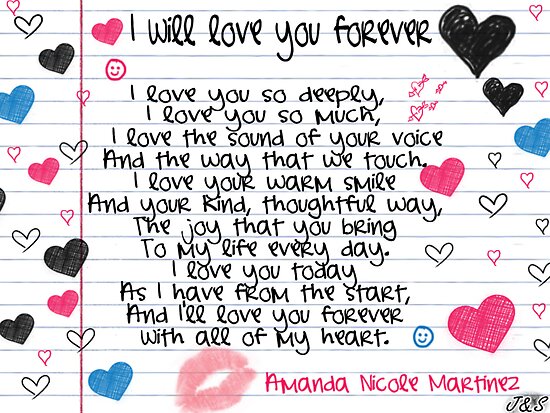 I will love you forever
I love you so deeply,
I love you so much,
I love the sound of your voice
And the way that we touch.
I love your warm smile
And your kind, thoughtful way,
The joy that you bring
To my life every day.
I love you today
As I have from the start,
And I'll love you forever
with all of my heart.
Amanda Nicole Martinez
J&S